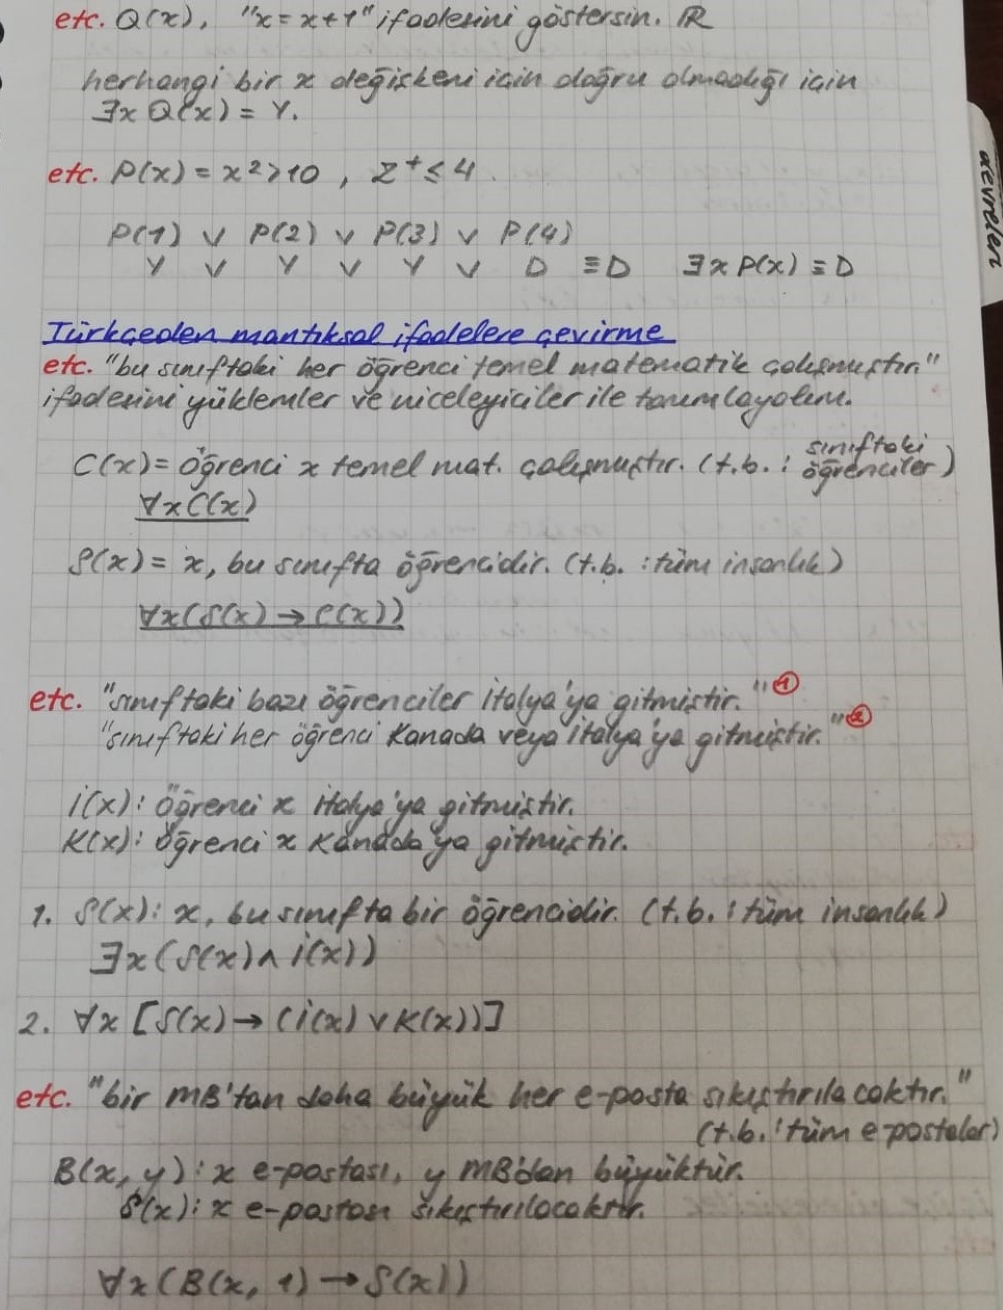 etc. Q(x), "x = x+1" ifadesini göstersin. R
herhangi bir x değişkeni için doğru olmadığı için
∃x Q(x) = Y.
etc. P(x) = x²>10 , Z⁺ ≤ 4.
P(1) ∨ P(2) ∨ P(3) ∨ P(4)
Y ∨ Y ∨ Y ∨ D ≡ D ∃x P(x) ≡ D
Türkçeden mantıksal ifadelere çevirme
etc. "bu sınıftaki her öğrenci temel matematik çalışmıştır."
ifadesini yüklemler ve niceleyiciler ile tanımlayalım.
C(x) = öğrenci x temel mat. çalışmıştır. (t.b. : sınıftaki öğrenciler)
∀x C(x)
S(x) = x, bu sınıfta öğrencidir. (t.b. : tüm insanlık)
∀x (S(x) → C(x))
etc. "sınıftaki bazı öğrenciler İtalya'ya gitmiştir." 1
"sınıftaki her öğrenci Kanada veya İtalya'ya gitmiştir." 2
İ(x): Öğrenci x İtalya'ya gitmiştir.
K(x): öğrenci x Kanada'ya gitmiştir.
1. S(x): x, bu sınıfta bir öğrencidir. (t.b. : tüm insanlık)
∃x (S(x) ∧ İ(x))
2. ∀x [S(x) → (İ(x) ∨ K(x))]
etc. "bir MB'tan daha büyük her e-posta sıkıştırılacaktır."
(t.b. : tüm e-postalar)
B(x, y): x e-postası, y MB'dan büyüktür.
S(x): x e-postası sıkıştırılacaktır.
∀x (B(x, 1) → S(x))
devreleri